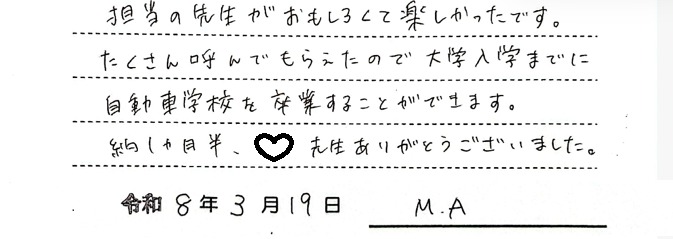 担当の先生がおもしろくて楽しかったです。
たくさん呼んでもらえたので大学入学までに
自動車学校を卒業することができます。
約1カ月半、♡先生ありがとうございました。
令和8年3月19日 M.A